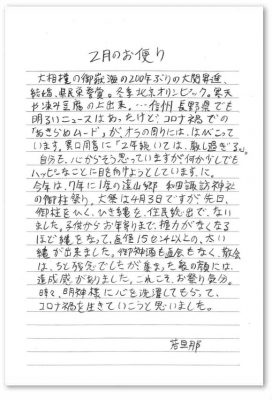 2月のお便り
大相撲の御嶽海の200年ぶりの大関昇進、
結婚、県民栄誉賞。冬季北京オリンピック。寒天
や凍み豆腐の上出来。…信州 長野県でも
明るいニュースはあったけど、コロナ禍での
「あきらめムード」が、オラの回りには、はびこって
います。異口同音に「2年続いては、厳し過ぎる」。
自分も、心からそう思っていますが何かがしでも
ハッピなことに目を向けようとしています、に。
今年は、7年に1度の遠山郷 和田諏訪神社
の御柱祭り。大祭は4月3日ですが先日、
御柱をひく、ひき縄を、住民総出で、ない
ました。子供からお年寄りまで、握力がなくなる
ほど縄をなって、直径15センチ以上の、太い
縄が出来ました。御神酒も直会もなく、散会
は、ちと残念でしたが集まった衆の顔には、
達成感がありました。これこそ、お祭り気分。
時々、明神様に心を洗濯してもらって、
コロナ禍を生きていこうと思いました。
若旦那